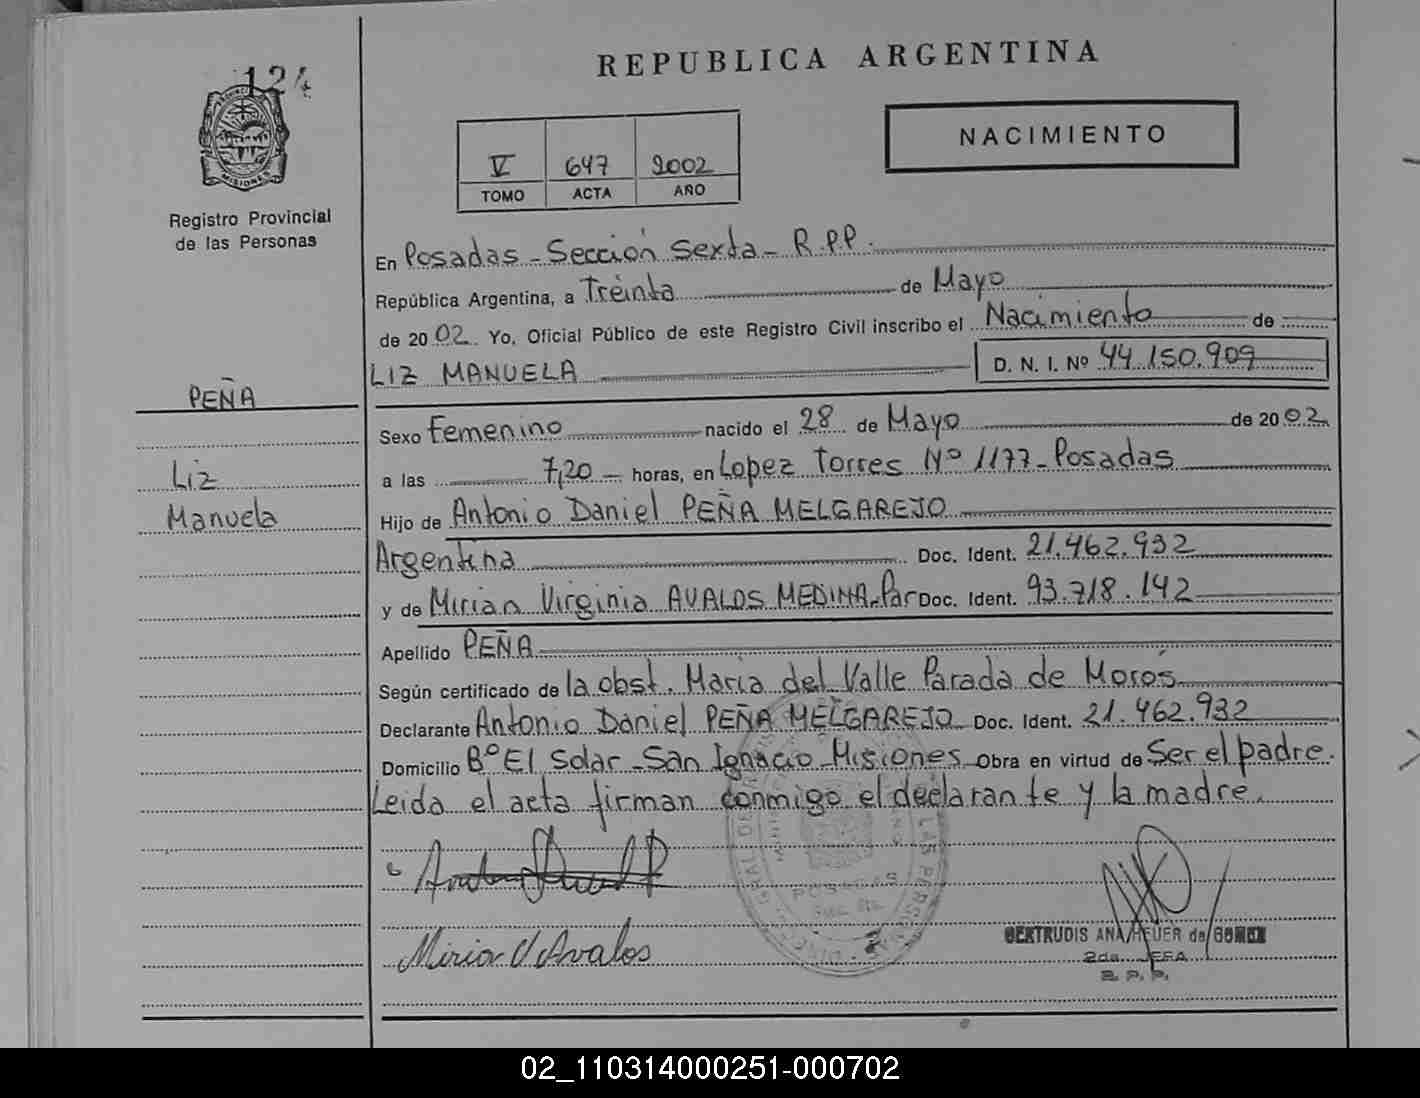 124
REPUBLICA ARGENTINA
NACIMIENTO
V 647 2002
TOMO ACTA AÑO
MISIONES
Registro Provincial
de las Personas
En Posadas - Sección Sexta - R.P.P.
República Argentina, a Treinta de Mayo
de 2002 Yo, Oficial Público de este Registro Civil inscribo el Nacimiento de
LIZ MANUELA D. N. I. Nº 44.150.909
PEÑA
Sexo Femenino nacido el 28 de Mayo de 2002
Liz
a las 7,20 - horas, en Lopez Torres Nº 1177 - Posadas
Manuela
Hijo de Antonio Daniel PEÑA MELGAREJO
Argentina Doc. Ident. 21.462.932
y de Mirian Virginia AVALOS MEDINA - Par Doc. Ident. 93.718.142
Apellido PEÑA
Según certificado de la obst. Maria del Valle Parada de Moros
Declarante Antonio Daniel PEÑA MELGAREJO Doc. Ident. 21.462.932
Domicilio Bº El Solar - San Ignacio - Misiones Obra en virtud de Ser el padre.
Leida el acta firman conmigo el declarante y la madre.
POSADAS
Mirian V Avalos
GERTRUDIS ANA HEUER de GOMEZ
2da. JEFA
R. P. P.
02_110314000251-000702